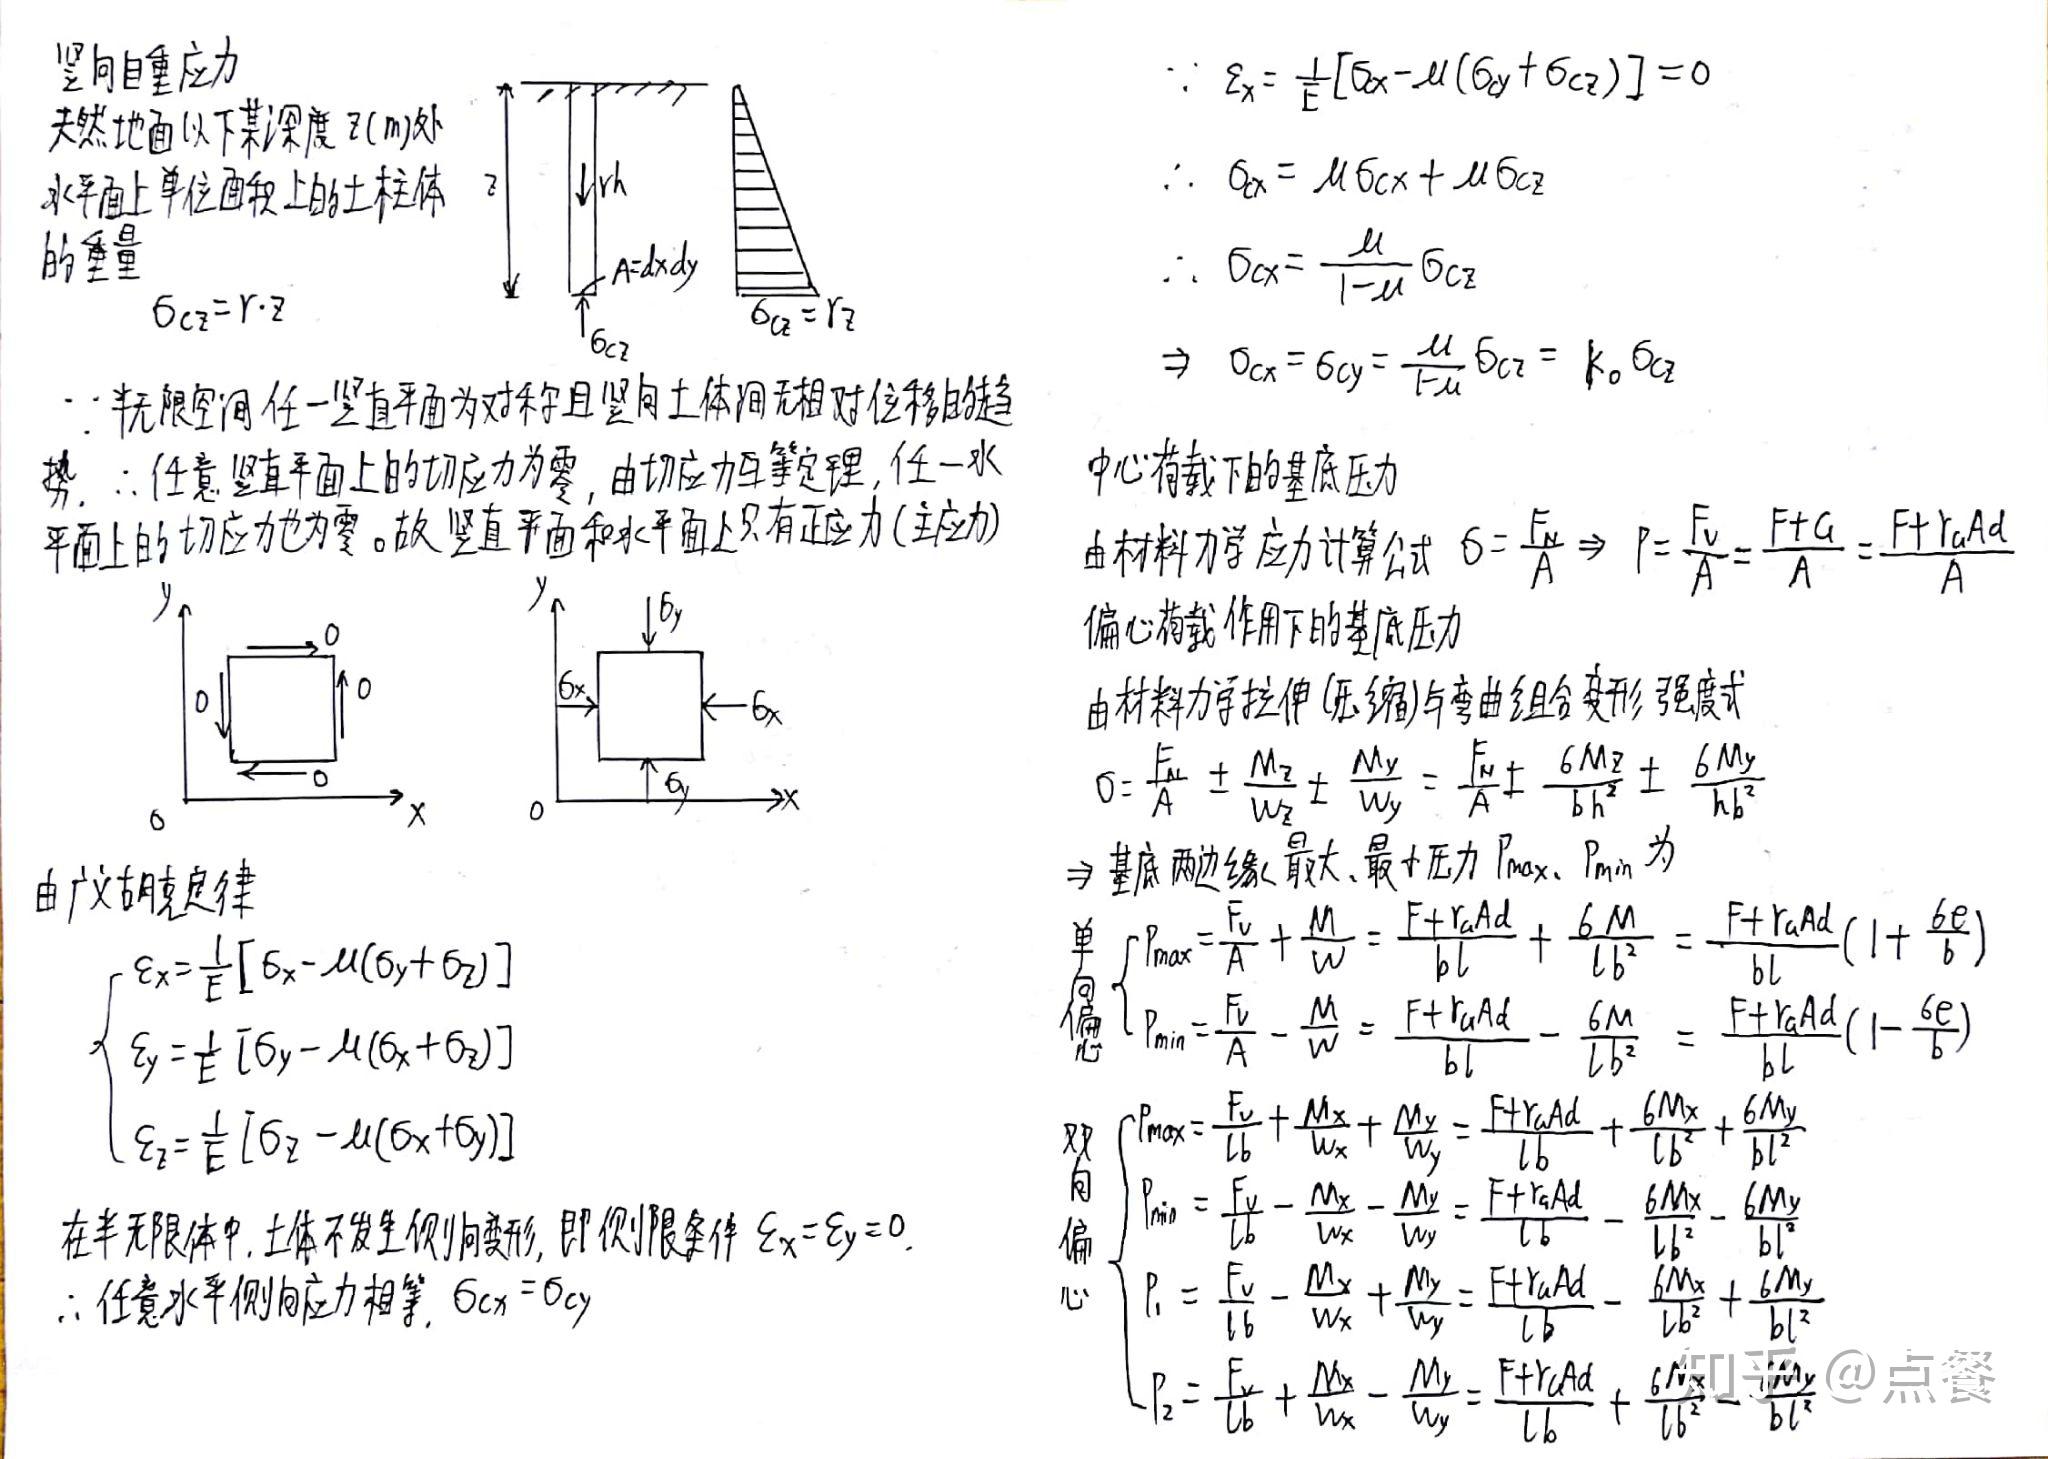 竖向自重应力
天然地面以下某深度z(m)处
水平面上单位面积上的土柱体
的重量
σcz=r·z
z
rh
A=dxdy
σcz
σcz=rz
∵半无限空间任一竖直平面为对称且竖向土体间无相对位移的趋
势.∴任意竖直平面上的切应力为零,由切应力互等定理,任一水
平面上的切应力也为零。故竖直平面和水平面上只有正应力(主应力)
y
0
0
0
0
0
x
y
σy
σx
σx
σy
0
x
由广义胡克定律
εx=1/E[σx-μ(σy+σz)]
εy=1/E[σy-μ(σx+σz)]
εz=1/E[σz-μ(σx+σy)]
在半无限体中,土体不发生侧向变形,即侧限条件 εx=εy=0.
∴任意水平侧向应力相等. σcx=σcy
∵ εx=1/E[σcx-μ(σcy+σcz)]=0
∴ σcx=μσcx+μσcz
∴ σcx=μ/(1-μ)σcz
⇒ σcx=σcy=μ/(1-μ)σcz=k₀σcz
中心荷载下的基底压力
由材料力学应力计算公式 σ=FN/A⇒P=Fv/A=(F+G)/A=(F+rGAd)/A
偏心荷载作用下的基底压力
由材料力学拉伸(压缩)与弯曲组合变形强度式
σ=FN/A±Mz/Wz±My/Wy=FN/A±6Mz/bh²±6My/hb²
⇒基底两边缘最大、最小压力Pmax、Pmin为
单向偏心
Pmax=Fv/A+M/W=(F+rGAd)/bl+6M/lb²=(F+rGAd)/bl(1+6e/b)
Pmin=Fv/A-M/W=(F+rGAd)/bl-6M/lb²=(F+rGAd)/bl(1-6e/b)
双向偏心
Pmax=Fv/lb+Mx/Wx+My/Wy=(F+rGAd)/lb+6Mx/lb²+6My/bl²
Pmin=Fv/lb-Mx/Wx-My/Wy=(F+rGAd)/lb-6Mx/lb²-6My/bl²
P₁=Fv/lb-Mx/Wx+My/Wy=(F+rGAd)/lb-6Mx/lb²+6My/bl²
P₂=Fv/lb+Mx/Wx-My/Wy=(F+rGAd)/lb+6Mx/lb²-6My/bl²
知乎 @点餐